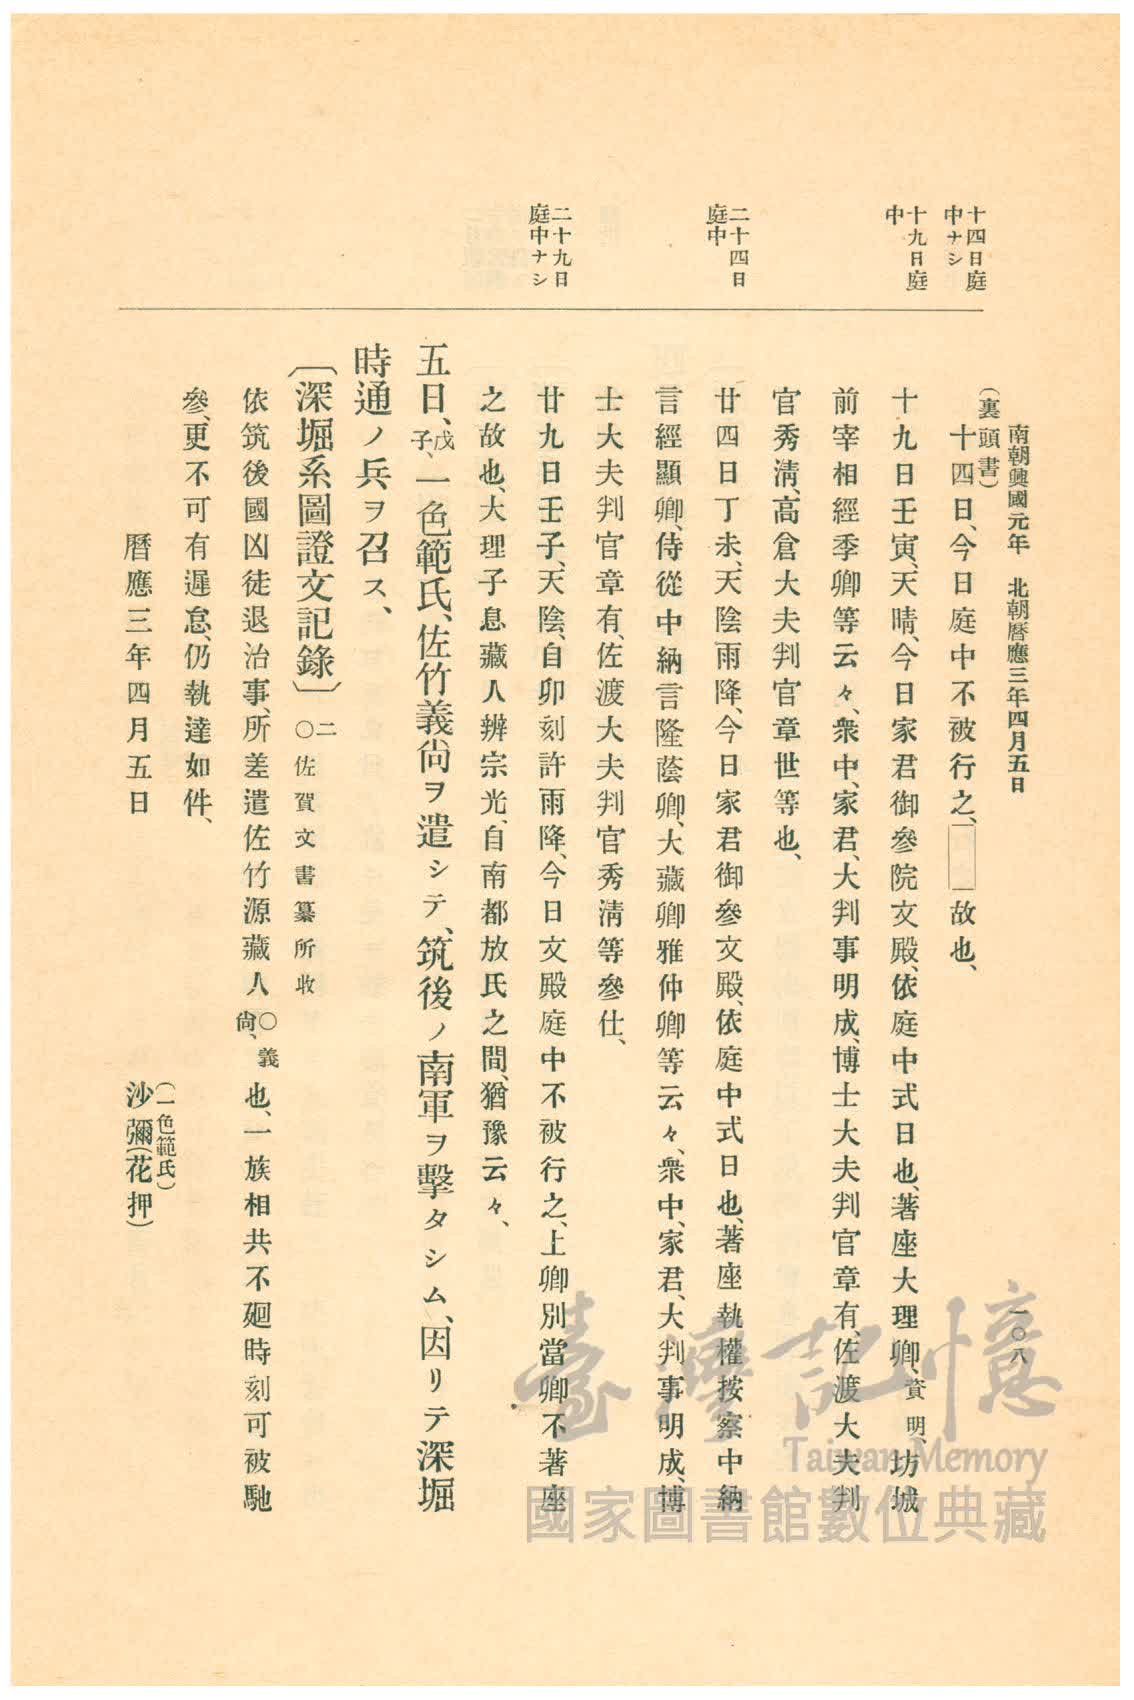 南朝興國元年　北朝曆應三年四月五日
一〇八
十四日庭
中ナシ
十九日庭
中
二十四日
庭中
二十九日
庭中ナシ
(裏頭書)
十四日、今日庭中不被行之、故也、
十九日壬寅、天晴、今日家君御參院文殿、依庭中式日也、著座大理卿、資明、坊城
前宰相經季卿等云々、衆中、家君、大判事明成、博士大夫判官章有、佐渡大夫判
官秀淸、高倉大夫判官章世等也、
廿四日丁未、天陰雨降、今日家君御參文殿、依庭中式日也、著座執權按察中納
言經顯卿、侍從中納言隆蔭卿、大藏卿雅仲卿等云々、衆中、家君、大判事明成、博
士大夫判官章有、佐渡大夫判官秀淸等參仕、
廿九日壬子、天陰、自卯刻許雨降、今日文殿庭中不被行之、上卿別當卿不著座
之故也、大理子息藏人辨宗光、自南都放氏之間、猶豫云々、
五日、戊子、一色範氏、佐竹義尙ヲ遣シテ、筑後ノ南軍ヲ擊タシム、因リテ深堀
時通ノ兵ヲ召ス、
〔深堀系圖證文記錄〕二〇佐賀文書纂所收
依筑後國凶徒退治事、所差遣佐竹源藏人〇義尙、也、一族相共不廻時刻可被馳
參、更不可有遲怠、仍執達如件、
曆應三年四月五日
(一色範氏)
沙彌(花押)
臺灣記憶
Taiwan Memory
國家圖書館數位典藏